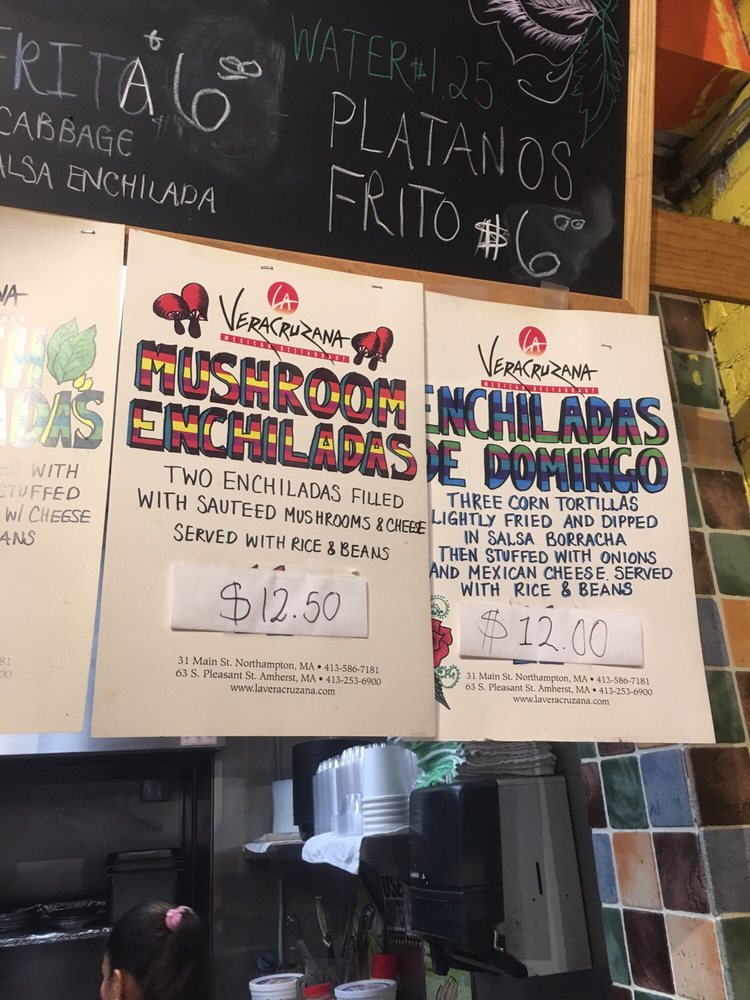 FRITA $6.00
CABBAGE
ALSA ENCHILADA
WATER $1.25
PLATANOS
FRITO $6.00
WITH
STUFFED
W/ CHEESE
ANS
LA
VERACRUZANA
MEXICAN RESTAURANT
MUSHROOM
ENCHILADAS
TWO ENCHILADAS FILLED
WITH SAUTEED MUSHROOMS & CHEESE
SERVED WITH RICE & BEANS
$12.50
31 Main St. Northampton, MA • 413-586-7181
63 S. Pleasant St. Amherst, MA • 413-253-6900
www.laveracruzana.com
LA
VERACRUZANA
MEXICAN RESTAURANT
ENCHILADAS
DE DOMINGO
THREE CORN TORTILLAS
LIGHTLY FRIED AND DIPPED
IN SALSA BORRACHA
THEN STUFFED WITH ONIONS
AND MEXICAN CHEESE. SERVED
WITH RICE & BEANS
$12.00
31 Main St. Northampton, MA • 413-586-7181
63 S. Pleasant St. Amherst, MA • 413-253-6900
www.laveracruzana.com